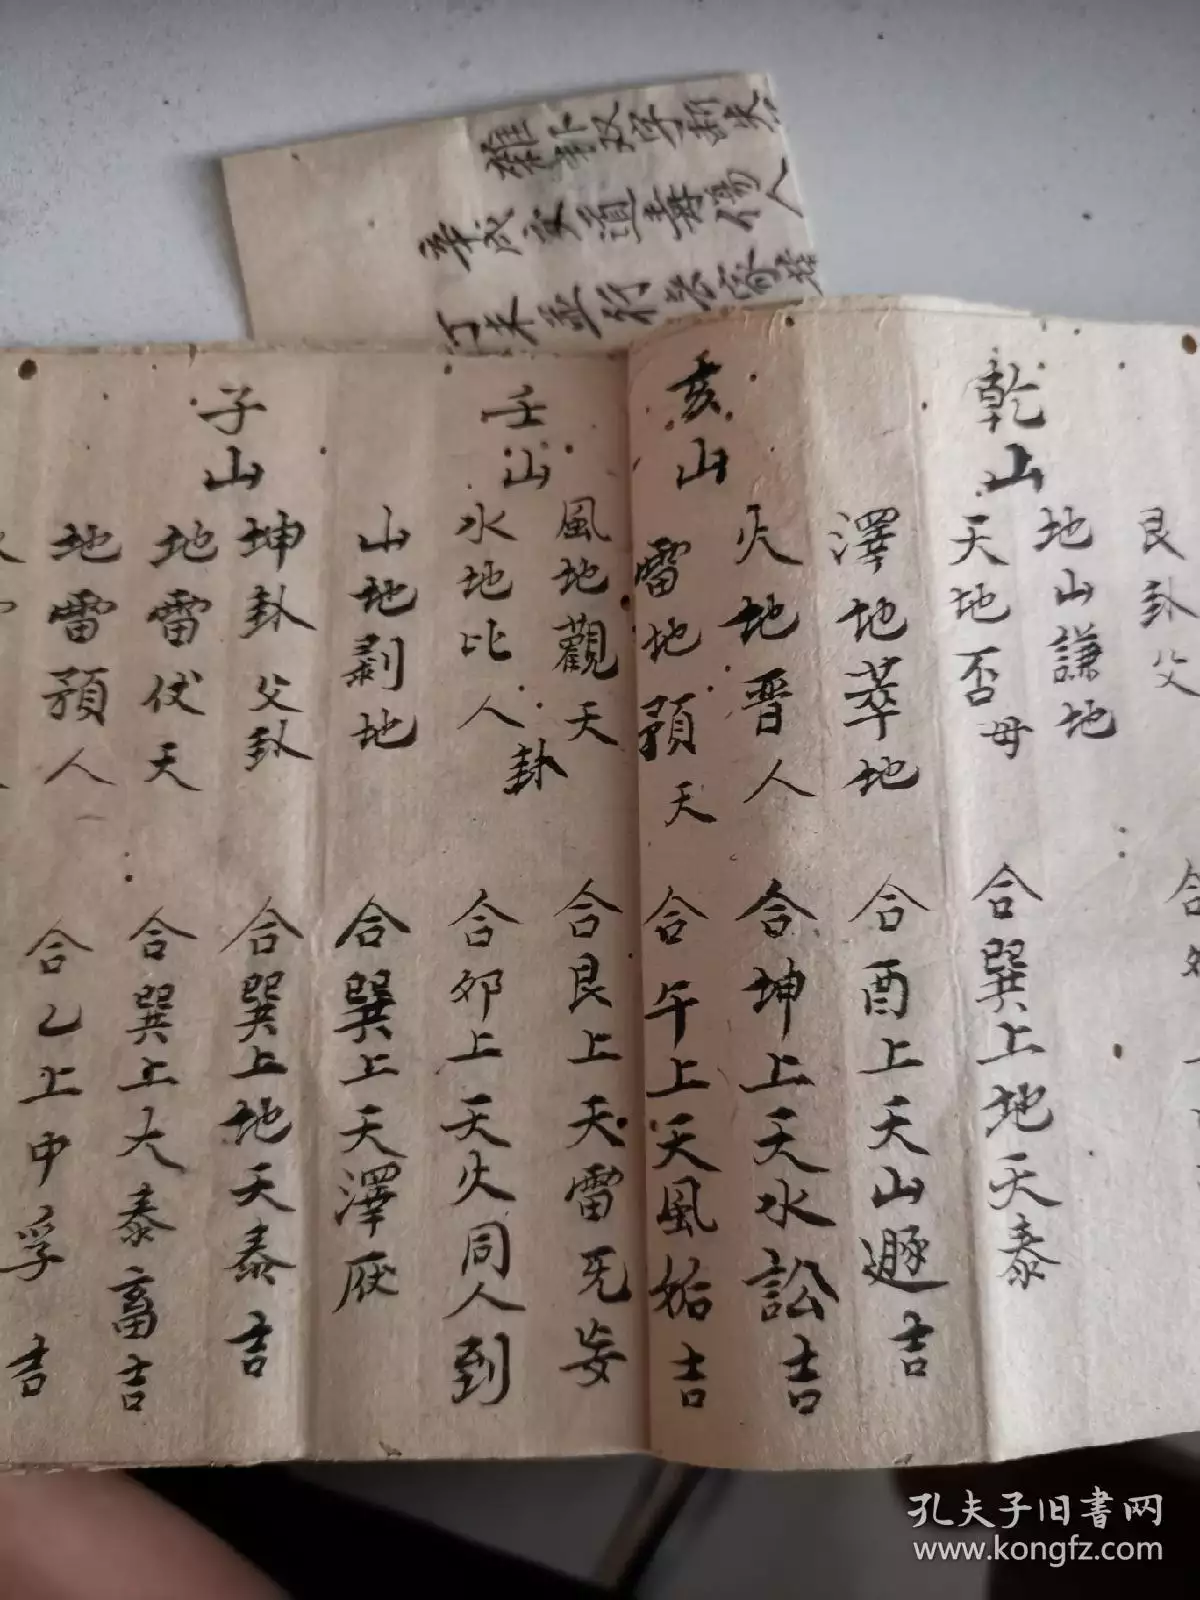 雜卦双字斬失
辛成安道壽場代人
丁未並行宏家
艮卦父
合
乾山
地山謙地
天地否母
合巽上地天泰
澤地萃地
合酉上天山遯吉
火地晋人
合坤上天水訟吉
亥山
雷地預天
合午上天風始吉
風地觀天
合艮上天雷旡妄
壬山
水地比人
卦
合卯上天火同人到
山地剥地
合巽上天澤
子山
坤卦父卦
合巽上地天泰吉
地雷伏天
合巽上大泰畜吉
地雷預人
合乙上中孚吉
孔夫子旧書网
www.kongfz.com